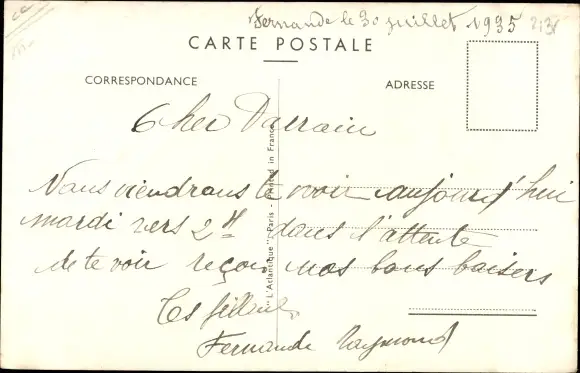 Fernande le 30 juillet 1935
CARTE POSTALE
CORRESPONDANCE
ADRESSE
Cher Parrain
Nous viendrons te voir aujourd'hui
mardi vers 2H dans l'attente
de te voir reçois nos bons baisers
Tes filleuls
Fernande Raymond
"L'Atlantique" - Paris - Printed in France